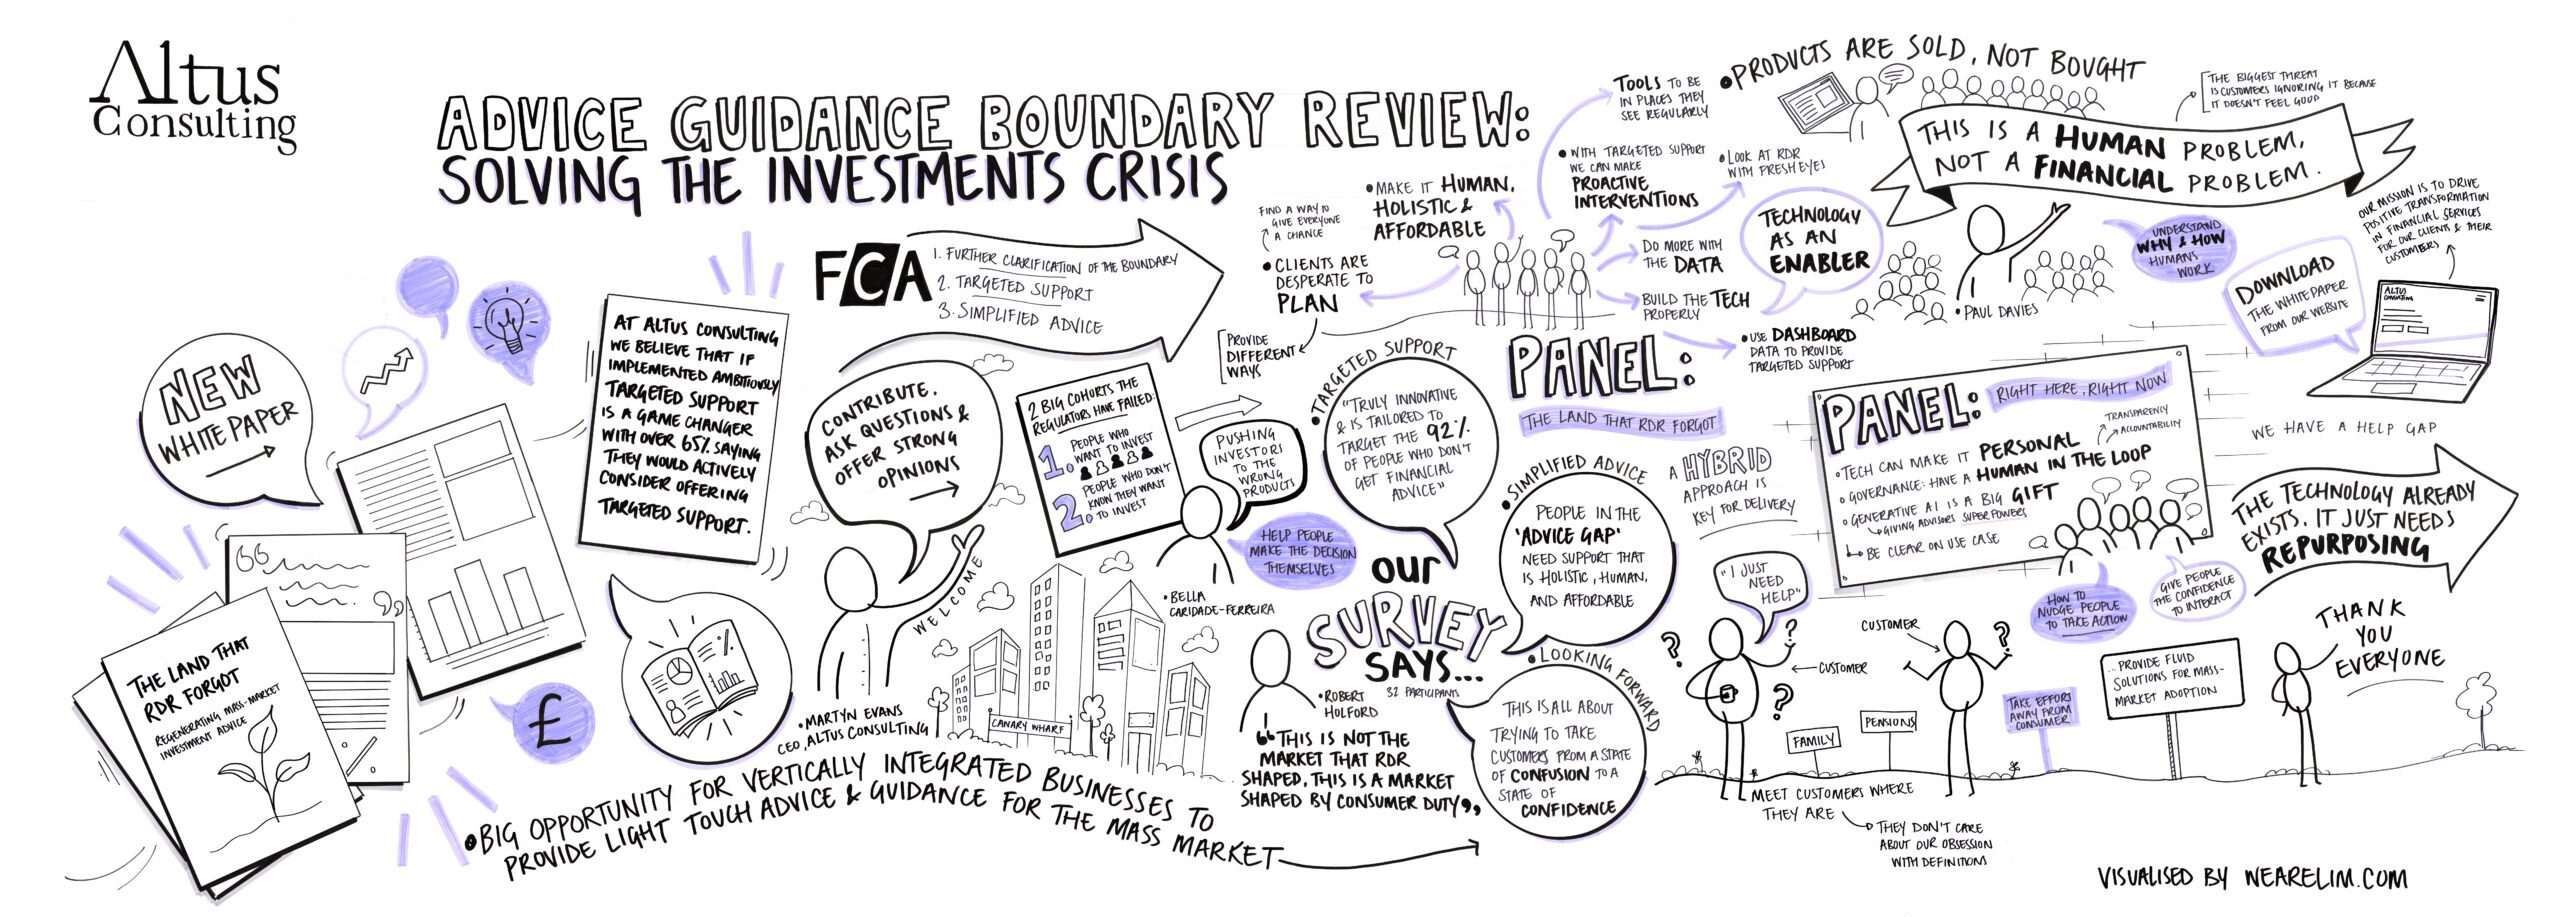 Altus
Consulting
ADVICE GUIDANCE BOUNDARY REVIEW:
SOLVING THE INVESTMENTS CRISIS
NEW
WHITE PAPER
THE LAND THAT
RDR FORGOT
REGENERATING MASS-MARKET
INVESTMENT ADVICE
£
AT ALTUS CONSULTING
WE BELIEVE THAT IF
IMPLEMENTED AMBITIOUSLY
TARGETED SUPPORT
IS A GAME CHANGER
WITH OVER 65% SAYING
THEY WOULD ACTIVELY
CONSIDER OFFERING
TARGETED SUPPORT.
%
FCA
1. FURTHER CLARIFICATION OF THE BOUNDARY
2. TARGETED SUPPORT
3. SIMPLIFIED ADVICE
CONTRIBUTE,
ASK QUESTIONS &
OFFER STRONG
OPINIONS
WELCOME
• MARTYN EVANS
CEO, ALTUS CONSULTING
CANARY WHARF
• BIG OPPORTUNITY FOR VERTICALLY INTEGRATED BUSINESSES TO
PROVIDE LIGHT TOUCH ADVICE & GUIDANCE FOR THE MASS MARKET
2 BIG COHORTS THE
REGULATORS HAVE FAILED:
1. PEOPLE WHO
WANT TO INVEST
2. PEOPLE WHO DON'T
KNOW THEY WANT
TO INVEST
PUSHING
INVESTORS
TO THE
WRONG
PRODUCTS
HELP PEOPLE
MAKE THE DECISION
THEMSELVES
• BELLA
CARIDADE-FERREIRA
• ROBERT
HOLFORD
“THIS IS NOT THE
MARKET THAT RDR
SHAPED, THIS IS A MARKET
SHAPED BY CONSUMER DUTY”
OUR
SURVEY
SAYS...
32 PARTICIPANTS
• TARGETED SUPPORT
"TRULY INNOVATIVE
& IS TAILORED TO
TARGET THE 92%
OF PEOPLE WHO DON'T
GET FINANCIAL
ADVICE"
• SIMPLIFIED ADVICE
PEOPLE IN THE
'ADVICE GAP'
NEED SUPPORT THAT
IS HOLISTIC, HUMAN,
AND AFFORDABLE
• LOOKING FORWARD
THIS IS ALL ABOUT
TRYING TO TAKE
CUSTOMERS FROM A STATE
OF CONFUSION TO A
STATE OF
CONFIDENCE
PANEL:
THE LAND THAT RDR FORGOT
FIND A WAY TO
GIVE EVERYONE
A CHANCE
• CLIENTS ARE
DESPERATE TO
PLAN
PROVIDE
DIFFERENT
WAYS
• MAKE IT HUMAN,
HOLISTIC &
AFFORDABLE
TOOLS TO BE
IN PLACES THEY
SEE REGULARLY
• WITH TARGETED SUPPORT
WE CAN MAKE
PROACTIVE
INTERVENTIONS
• LOOK AT RDR
WITH FRESH EYES
DO MORE WITH
THE DATA
BUILD THE TECH
PROPERLY
• USE DASHBOARD
DATA TO PROVIDE
TARGETED SUPPORT
TECHNOLOGY
AS AN
ENABLER
A HYBRID
APPROACH IS
KEY FOR DELIVERY
• PRODUCTS ARE SOLD, NOT BOUGHT
THE BIGGEST THREAT
IS CUSTOMERS IGNORING IT BECAUSE
IT DOESN'T FEEL GOOD
THIS IS A HUMAN PROBLEM,
NOT A FINANCIAL PROBLEM.
• PAUL DAVIES
UNDERSTAND
WHY & HOW
HUMANS
WORK
OUR MISSION IS TO DRIVE
POSITIVE TRANSFORMATION
IN FINANCIAL SERVICES
FOR OUR CLIENTS & THEIR
CUSTOMERS
DOWNLOAD
THE WHITE PAPER
FROM OUR WEBSITE
ALTUS
CONSULTING
PANEL:
RIGHT HERE, RIGHT NOW
TRANSPARENCY
ACCOUNTABILITY
• TECH CAN MAKE IT PERSONAL
• GOVERNANCE: HAVE A HUMAN IN THE LOOP
• GENERATIVE AI IS A BIG GIFT
GIVING ADVISORS SUPER POWERS
BE CLEAR ON USE CASE
HOW TO
NUDGE PEOPLE
TO TAKE ACTION
GIVE PEOPLE
THE CONFIDENCE
TO INTERACT
WE HAVE A HELP GAP
THE TECHNOLOGY ALREADY
EXISTS. IT JUST NEEDS
REPURPOSING
"I JUST
NEED
HELP"
? ? ?
CUSTOMER
CUSTOMER
?
FAMILY
PENSIONS
MEET CUSTOMERS WHERE
THEY ARE
THEY DON'T CARE
ABOUT OUR OBSESSION
WITH DEFINITIONS
TAKE EFFORT
AWAY FROM
CONSUMER
...PROVIDE FLUID
SOLUTIONS FOR MASS-
MARKET ADOPTION
THANK
YOU
EVERYONE
VISUALISED BY WEARELIM.COM